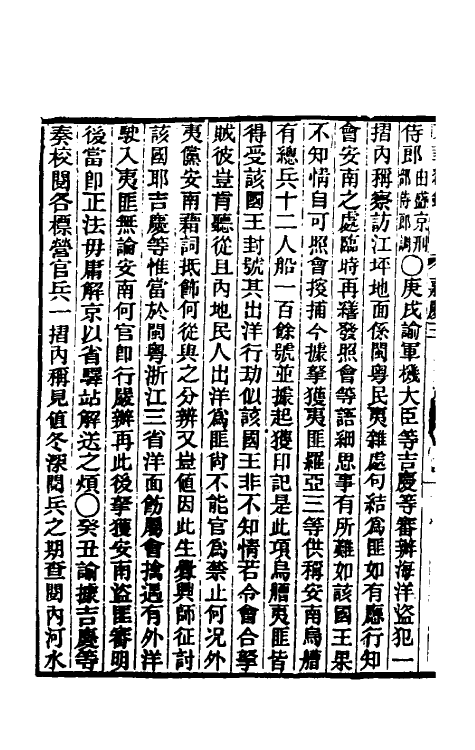 侍郎由盛京刑部侍郎調〇庚戌諭軍機大臣等吉慶等審辦海洋盜犯一
摺內稱察訪江坪地面係閩粵民夷雜處句結為匪如有應行知
會安南之處臨時再繕發照會等語細思事有所難如該國王果
不知情自可照會搜捕今據拏獲夷匪羅亞三等供稱安南烏艚
有總兵十二人船一百餘號並據起獲印記是此項烏艚夷匪皆
得受該國王封號其出洋行劫似該國王非不知情若令會合拏
賊彼豈肯聽從且內地民人出洋為匪尙不能官為禁止何况外
夷儻安南藉詞抵飾何從與之分辨又豈値因此生釁興師征討
該國耶吉慶等惟當於閩粵浙江三省洋面飭屬會擒遇有外洋
駛入夷匪無論安南何官卽行嚴辦再此後拏獲安南盜匪審明
後當卽正法毋庸解京以省驛站解送之煩〇癸丑諭據吉慶等
奏校閱各標營官兵一摺內稱見値冬深閱兵之期查閱內河水